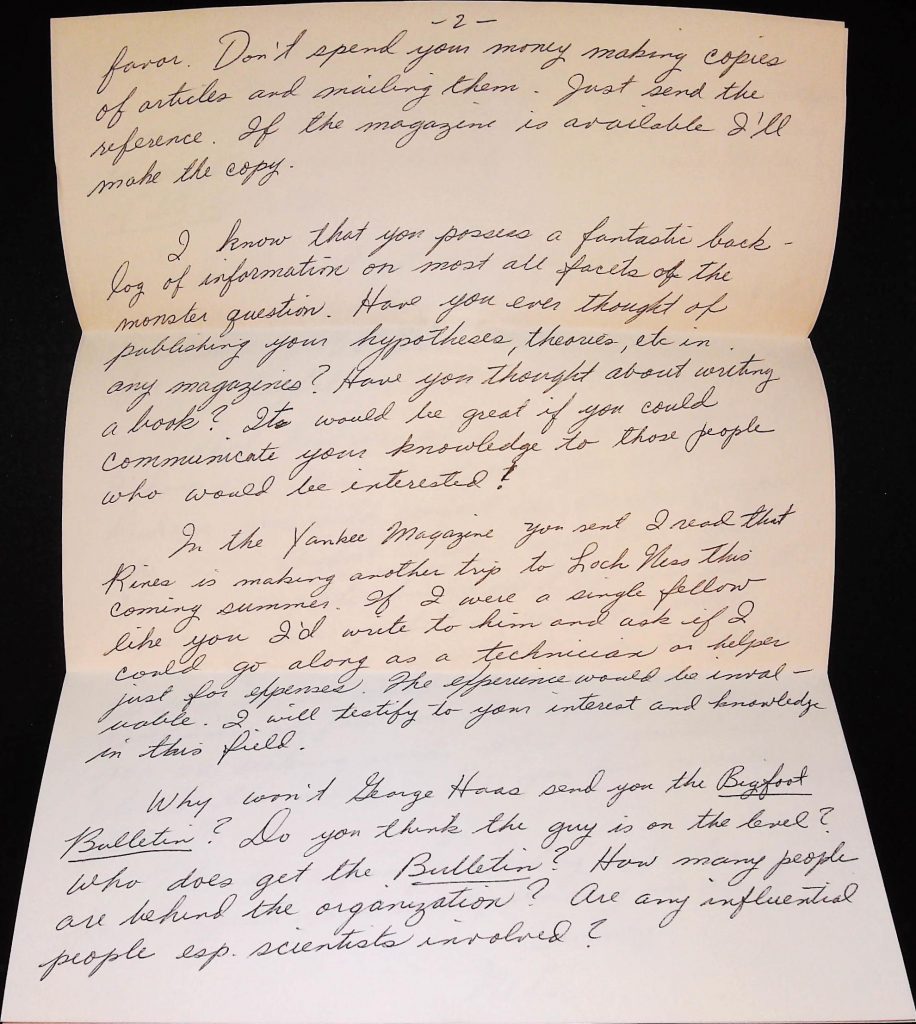 - 2 -
favor. Don't spend your money making copies
of articles and mailing them. Just send the
reference. If the magazine is available I'll
make the copy.
I know that you possess a fantastic back-
log of information on most all facets of the
monster question. Have you ever thought of
publishing your hypotheses, theories, etc in
any magazines? Have you thought about writing
a book? It would be great if you could
communicate your knowledge to those people
who would be interested!
In the Yankee Magazine you sent I read that
Rines is making another trip to Loch Ness this
coming summer. If I were a single fellow
like you I'd write to him and ask if I
could go along as a technician or helper
just for expenses. The experience would be inval-
uable. I will testify to your interest and knowledge
in this field.
Why won't George Haas send you the Bigfoot
Bulletin? Do you think the guy is on the level?
Who does get the Bulletin? How many people
are behind the organization? Are any influential
people esp. scientists involved?